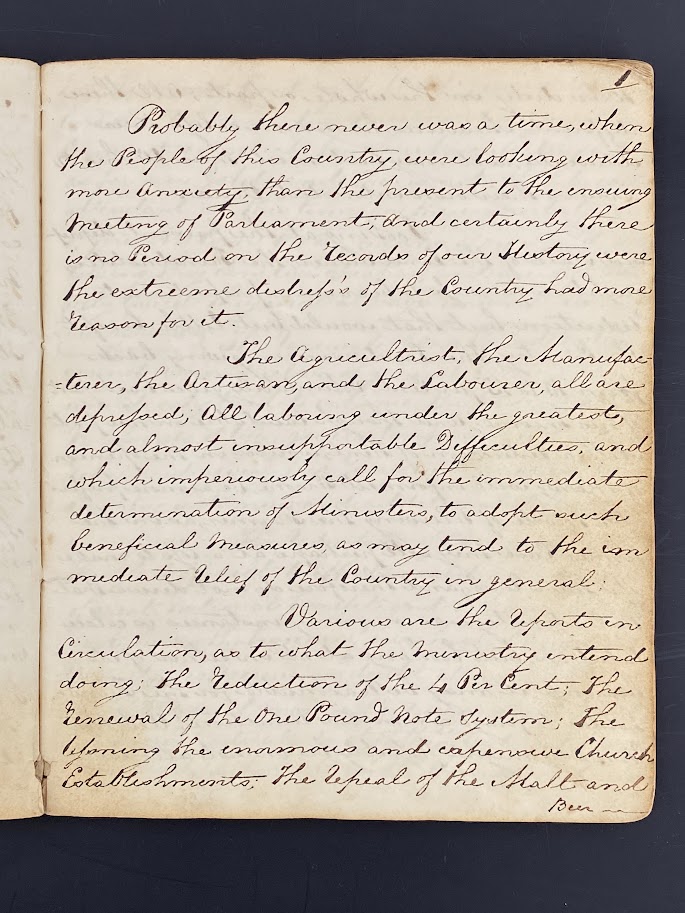 1
Probably there never was a time, when
the People of this Country, were looking with
more Anxiety, than the present to the ensuing
Meeting of Parliament; and certainly there
is no Period on the Records of our History were
the extreeme distress's of the Country had more
reason for it.
The Agricultrist, the Manufac-
=terer, the Artisan, and the Labourer, all are
depressed; All labouring under the greatest,
and almost insupportable Difficulties, and
which imperiously call for the immediate
determination of Ministers, to adopt such
beneficial Measures, as may tend to the im
mediate relief of the Country in general:
Various are the reports in
Circulation, as to what the Ministry intend
doing; the reduction of the 4 Per Cent; The
renewal of the One Pound Note System; The
lessning the enormous and expensive Church
Establishments; The repeal of the Malt and
Beer